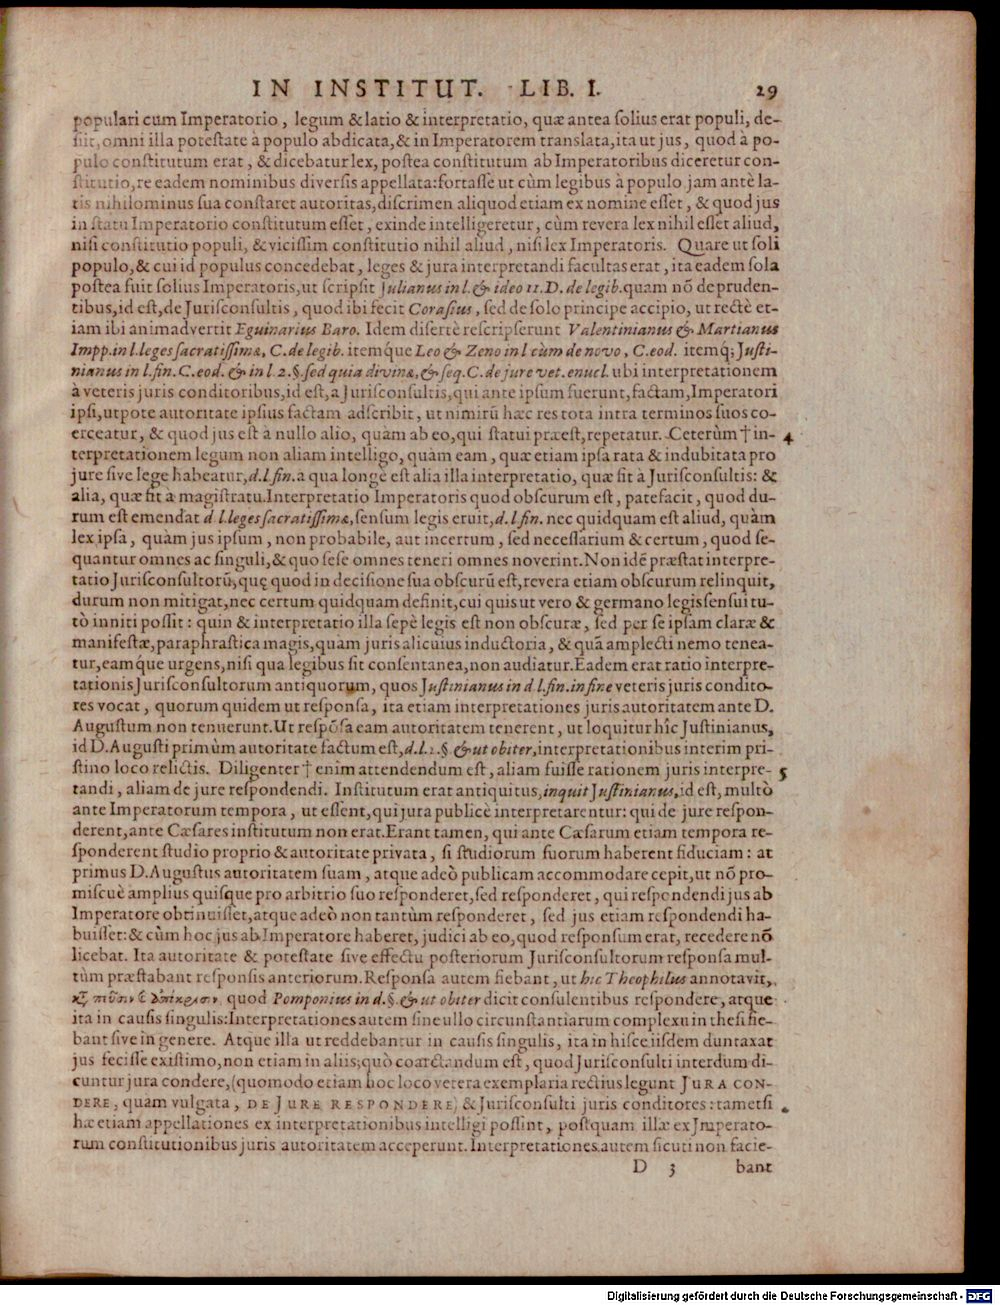 IN INSTITUT. LIB. I. 29
populari cum Imperatorio, legum & latio & interpretatio, quæ antea solius erat populi, de-
siit, omni illa potestate à populo abdicata, & in Imperatorem translata, ita ut jus, quod à po-
pulo constitutum erat, & dicebatur lex, postea constitutum ab Imperatoribus diceretur con-
stitutio, re eadem nominibus diversis appellata: fortasse ut cùm legibus à populo jam antè la-
tis nihilominus sua constaret autoritas, discrimen aliquod etiam ex nomine esset, & quod jus
in statu Imperatorio constitutum esset, exinde intelligeretur, cùm revera lex nihil esset aliud,
nisi constitutio populi, & vicissim constitutio nihil aliud, nisi lex Imperatoris. Quare ut soli
populo, & cui id populus concedebat, leges & jura interpretandi facultas erat, ita eadem sola
postea fuit solius Imperatoris, ut scripsit Julianus in l. & ideo 11. D. de legib. quam nō de pruden-
tibus, id est, de Jurisconsultis, quod ibi fecit Corasius, sed de solo principe accipio, ut rectè et-
iam ibi animadvertit Eguinarius Baro. Idem disertè rescripserunt Valentinianus & Martianus
Impp. in l. leges sacratissimæ, C. de legib. itemque Leo & Zeno in l cùm de novo, C. eod. itemq; Justi-
nianus in l. fin. C. eod. & in l. 2. §. sed quia divinæ, & seq. C. de jure vet. enucl. ubi interpretationem
à veteris juris conditoribus, id est, a Jurisconsultis, qui ante ipsum fuerunt, factam, Imperatori
ipsi, utpote autoritate ipsius factam adscribit, ut nimirū hæc res tota intra terminos suos co-
erceatur, & quod jus est à nullo alio, quàm ab eo, qui statui præest, repetatur. Ceterùm † in- 4
terpretationem legum non aliam intelligo, quàm eam, quæ etiam ipsa rata & indubitata pro
jure sive lege habeatur, d. l. fin. à qua longè est alia illa interpretatio, quæ fit à Jurisconsultis: &
alia, quæ fit à magistratu. Interpretatio Imperatoris quod obscurum est, patefacit, quod du-
rum est emendat d l. leges sacratissimæ, sensum legis eruit, d. l. fin. nec quidquam est aliud, quàm
lex ipsa, quàm jus ipsum, non probabile, aut incertum, sed necessarium & certum, quod se-
quantur omnes ac singuli, & quo sese omnes teneri omnes noverint. Non idē præstat interpre-
tatio Jurisconsultorū, quę quod in decisione sua obscurū est, revera etiam obscurum relinquit,
durum non mitigat, nec certum quidquam definit, cui quis ut vero & germano legis sensui tu-
tò inniti possit: quin & interpretatio illa sepè legis est non obscuræ, sed per se ipsam claræ &
manifestæ, paraphrastica magis, quàm juris alicuius inductoria, & quā amplecti nemo tenea-
tur, eamque urgens, nisi qua legibus sit consentanea, non audiatur. Eadem erat ratio interpre-
tationis Jurisconsultorum antiquorum, quos Justinianus in d l. fin. in fine veteris juris condito-
res vocat, quorum quidem ut responsa, ita etiam interpretationes juris autoritatem ante D.
Augustum non tenuerunt. Ut respōsa eam autoritatem tenerent, ut loquitur hîc Justinianus,
id D. Augusti primùm autoritate factum est, d. l. 2. § & ut obiter, interpretationibus interim pri-
stino loco relictis. Diligenter † enim attendendum est, aliam fuisse rationem juris interpre- 5
tandi, aliam de jure respondendi. Institutum erat antiquitus, inquit Justinianus, id est, multò
ante Imperatorum tempora, ut essent, qui jura publicè interpretarentur: qui de jure respon-
derent, ante Cæsares institutum non erat. Erant tamen, qui ante Cæsarum etiam tempora re-
sponderent studio proprio & autoritate privata, si studiorum suorum haberent fiduciam: at
primus D. Augustus autoritatem suam, atque adeò publicam accommodare cepit, ut nō pro-
miscuè amplius quisque pro arbitrio suo responderet, sed responderet, qui respondendi jus ab
Imperatore obtinuisset, atque adeò non tantùm responderet, sed jus etiam respondendi ha-
buisset: & cùm hoc jus ab Imperatore haberet, judici ab eo, quod responsum erat, recedere nō
licebat. Ita autoritate & potestate sive effectu posteriorum Jurisconsultorum responsa mul-
tùm præstabant responsis anteriorum. Responsa autem fiebant, ut hic Theophilus annotavit,
quod Pomponius in d. §. & ut obiter dicit consulentibus respondere, atque
ita in causis singulis: Interpretationes autem sine ullo circunstantiarum complexu in thesi fie-
bant sive in genere. Atque illa ut reddebantur in causis singulis, ita in hisce iisdem duntaxat
jus fecisse existimo, non etiam in aliis; quò coarctandum est, quod Jurisconsulti interdum di-
cuntur jura condere, (quomodo etiam hoc loco vetera exemplaria rectius legunt JURA CON-
DERE, quàm vulgata, DE JURE RESPONDERE) & Jurisconsulti juris conditores: tametsi
hæ etiam appellationes ex interpretationibus intelligi possint, postquam illæ ex Imperato-
rum constitutionibus juris autoritatem acceperunt. Interpretationes autem sicuti non facie-
D 3 bant
Digitalisierung gefördert durch die Deutsche Forschungsgemeinschaft - DFG